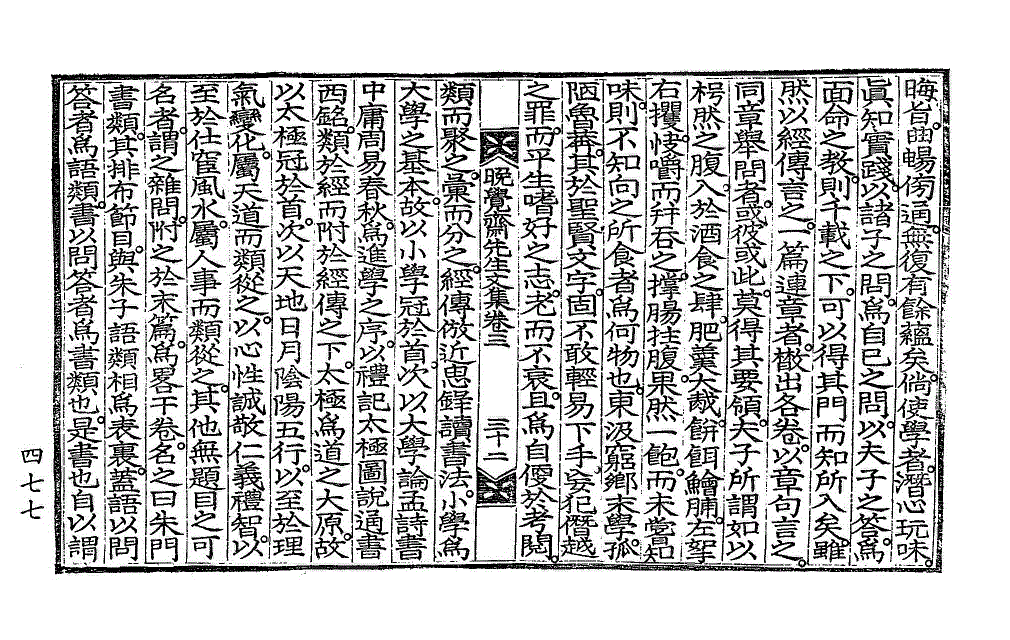 晦旨曲暢傍通無復有餘蘊矣倘使學者潛心玩味
眞知實踐以諸子之問爲自己之問以夫子之答爲
面命之敎則千載之下可以得其門而知所入矣雖
然以經傳言之一篇連章者橃出各卷以章句言之
同章舉問者或彼或此莫得其要領夫子所謂如以
枵然之腹入於酒食之肆肥羹大胾餅餌鱠脯左挐
右攫快嚼而幷呑之撑腸拄腹果然一飽而未嘗知
味則不知向之所食者爲何物也東汲窮鄕末學孤
陋魯莽其於聖賢文字固不敢輕易下手妄犯僭越
之罪而平生嗜好之志老而不衰且爲自便於考閱
晩覺齋先生文集卷三 三十二
類而聚之彙而分之經傳倣近思鐸讀書法小學爲
大學之基本故以小學冠於首次以大學論孟詩書
中庸周易春秋爲進學之序以禮記太極圖說通書
西銘類於經而附於經傳之下太極爲道之大原故
以太極冠於首次以天地日月陰陽五行以至於理
氣變化屬天道而類從之以心性誠敬仁義禮智以
至於仕宦風水屬人事而類從之其他無題目之可
名者謂之雜問附之於末篇爲畧干卷名之曰朱門
書類其排布節目與朱子語類相爲表裏蓋語以問
答者爲語類書以問答者爲書類也是書也自以謂
四七七